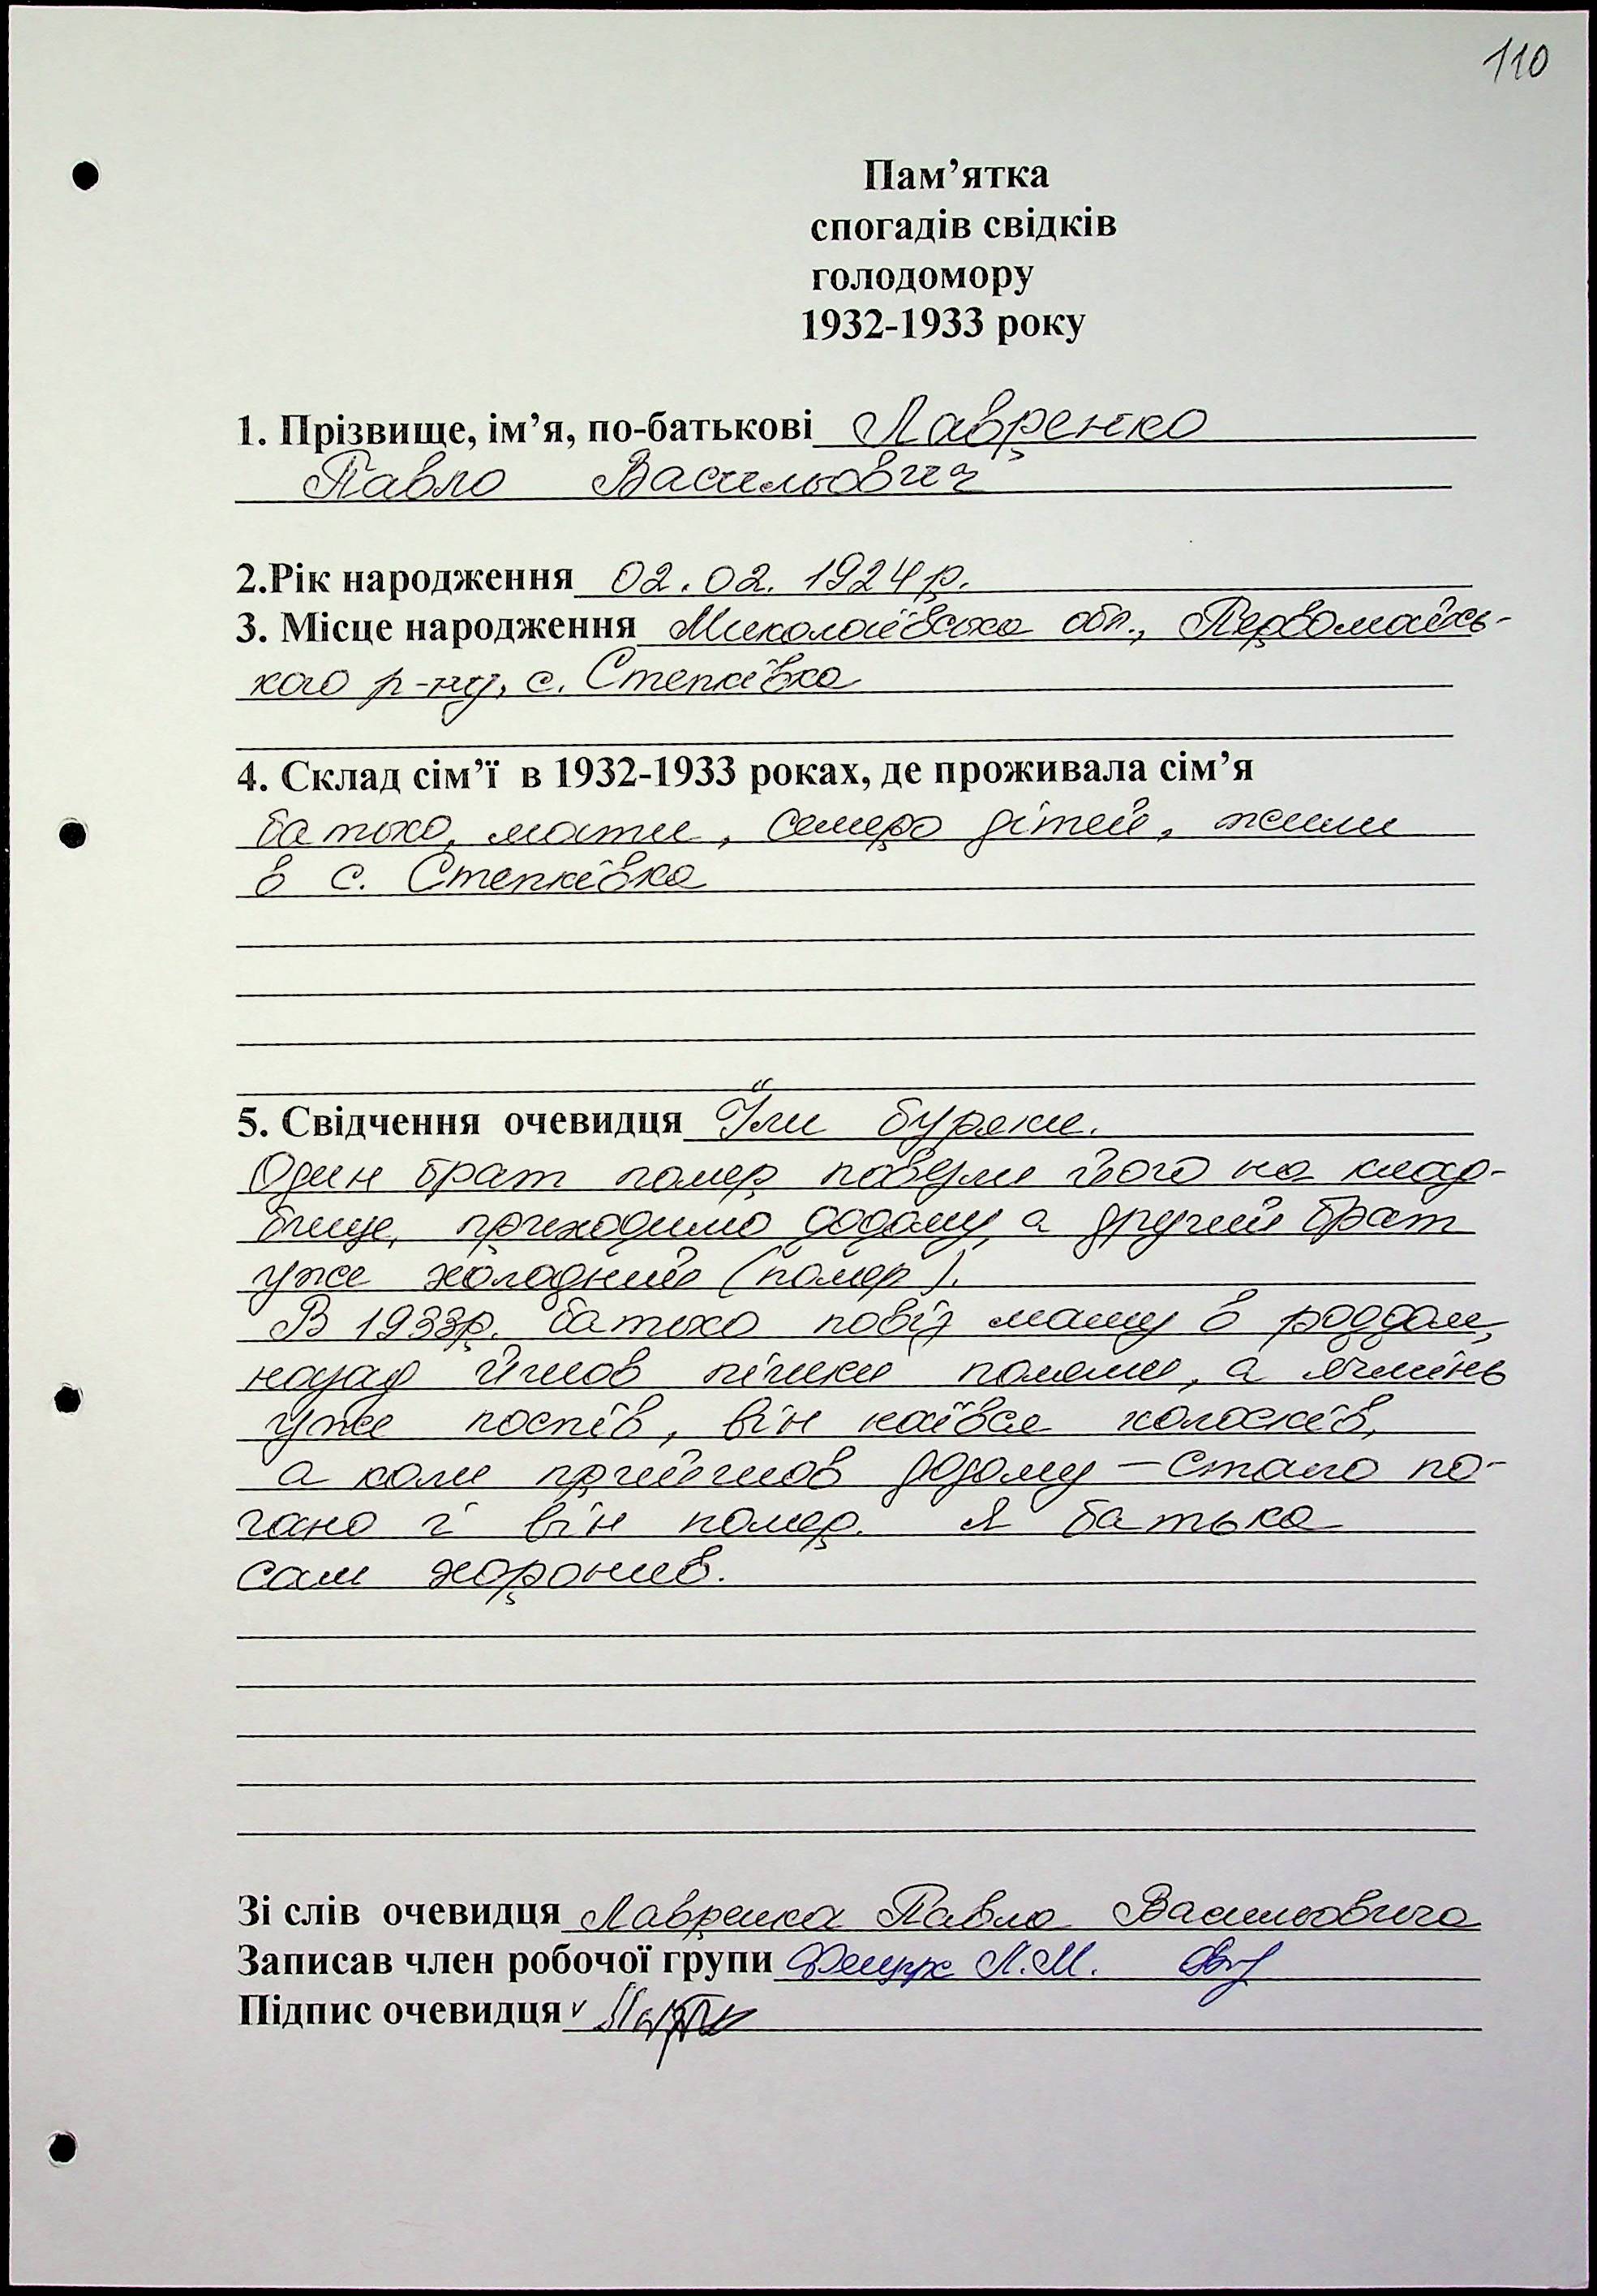 110
Пам’ятка
спогадів свідків
голодомору
1932-1933 року
1. Прізвище, ім’я, по-батькові Лавренко
Павло Васильович
2.Рік народження 02.02.1924р.
3. Місце народження Миколаївська обл., Первомайсь-
кого р-ну, с. Степківка
4. Склад сім’ї в 1932-1933 роках, де проживала сім’я
батько, мати, семеро дітей, жили
в с. Степківка
5. Свідчення очевидця Їли буряки.
Один брат помер, повезли його на клад-
бище, приходимо додому, а другий брат
уже холодний (помер).
В 1933р. батько повіз маму в роддом,
назад йшов пішки полями, а ячмінь
уже поспів, він наївся колосків,
а коли прийшов додому – стало по-
гано і він помер. Я батька
сам хоронив.
Зі слів очевидця Лавренка Павла Васильовича
Записав член робочої групи Л.М.
Підпис очевидця